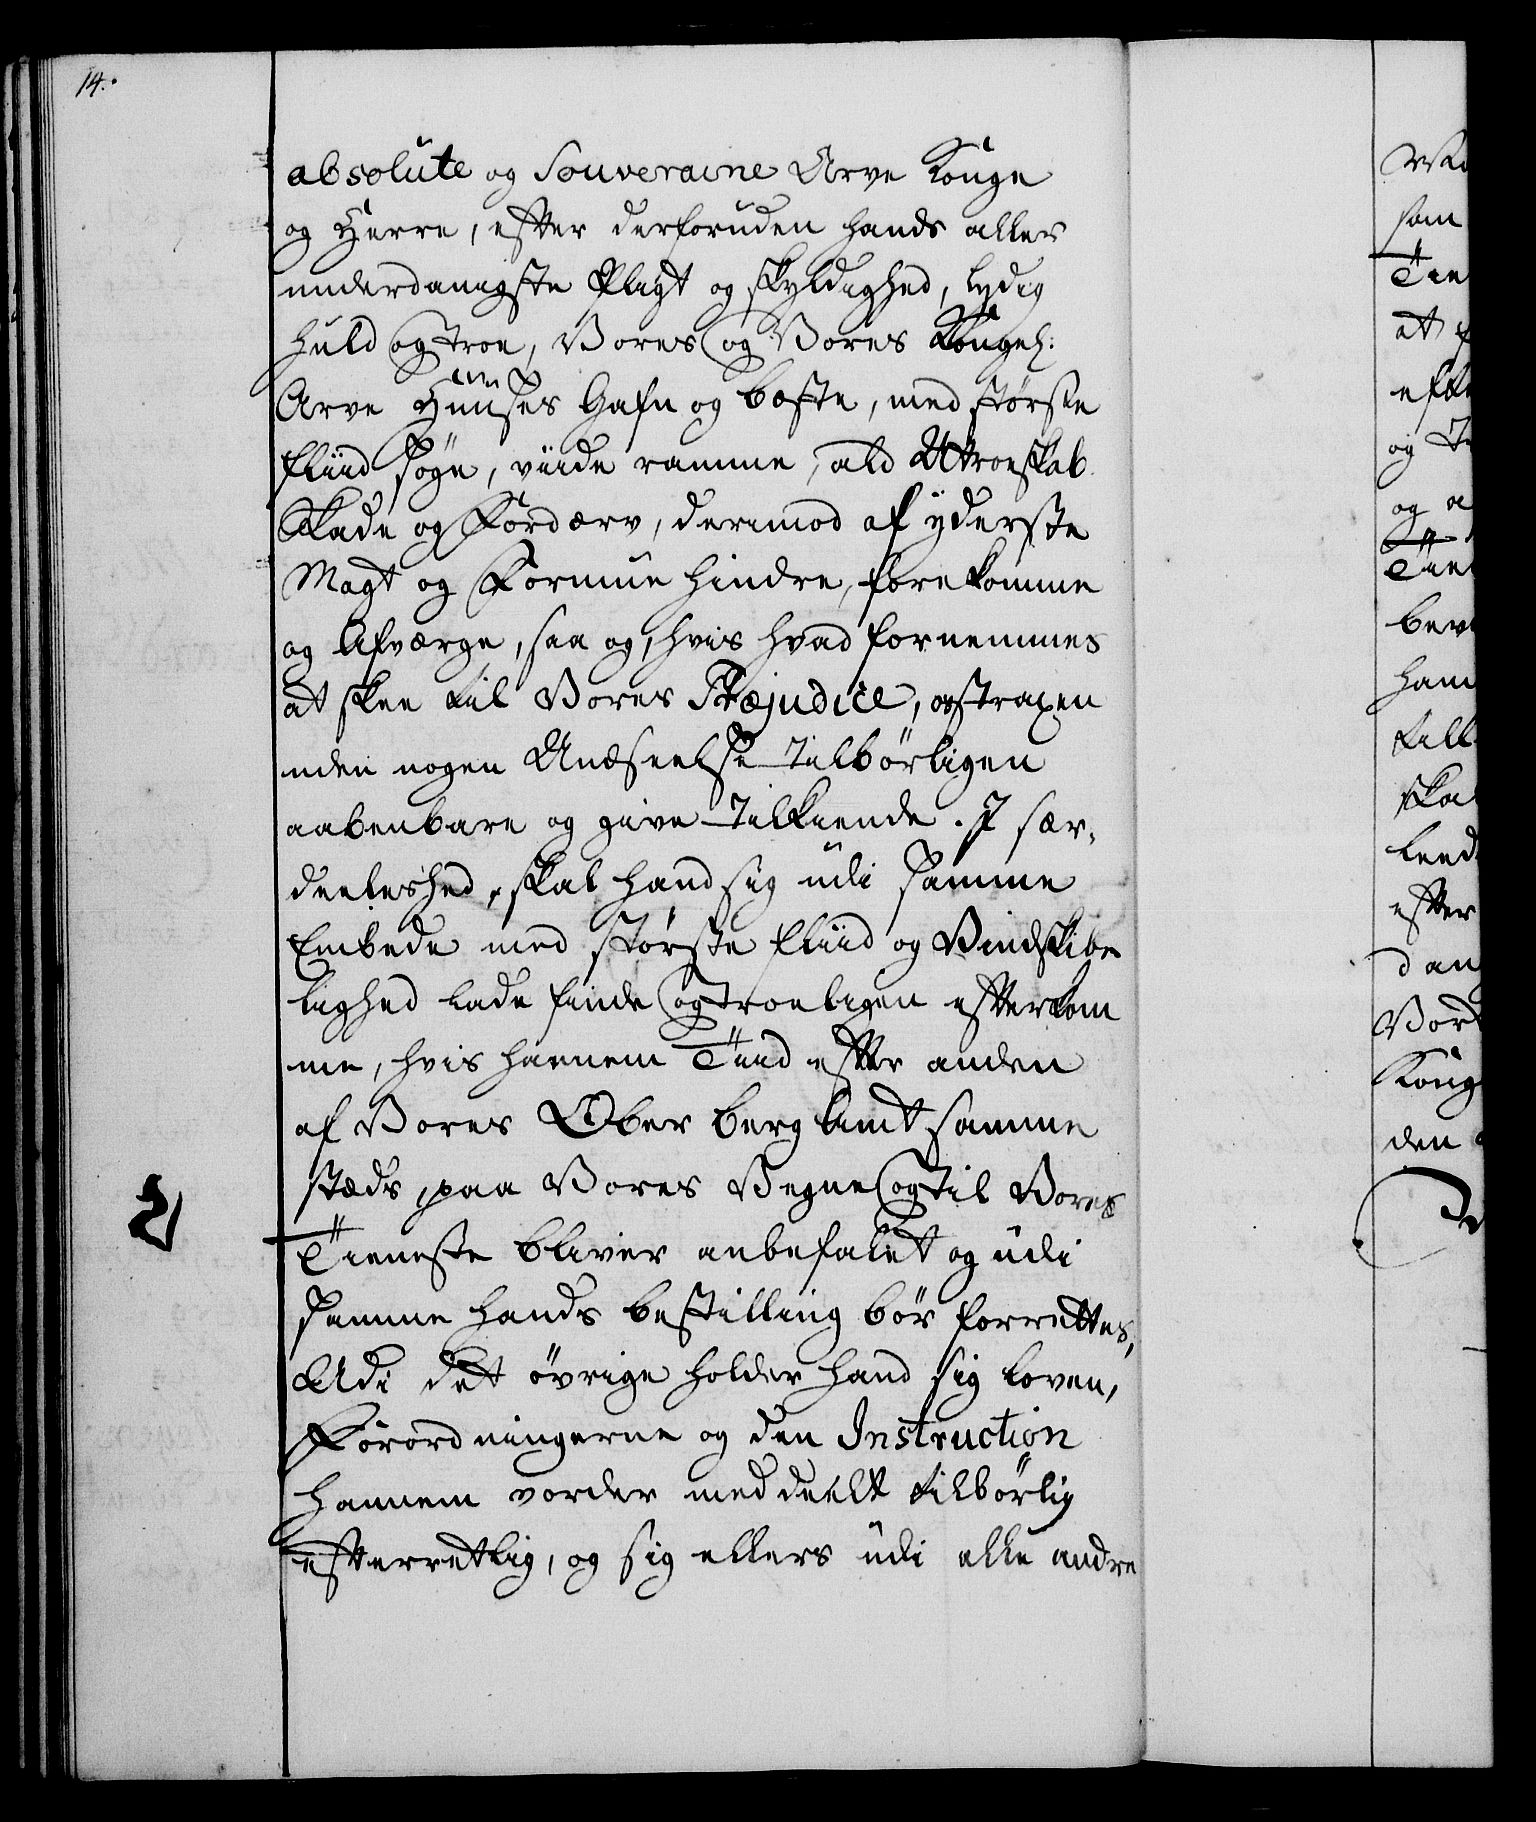 14.
absolute og Souveraine Arve Konge
og Herre, efter derforuden hands aller
underdanigste Pligt og skyldighed, lydig
huld og troe, Vores og Vores Kongel:
Arve Huuses Gafn og beste, med største
Fliid søge, viide ramme, ald Utroeskab
Skade og Fordærv, derimod af yderste
Magt og Formue hindre, forekomme
og Afværge, saa og, hvis hvad fornemmes
at skee til Vores Præjudice, straxen
uden nogen Undseelse Tilbørligen
aabenbare og give Tilkiende. I sær-
deeleshed, skal hand sig udi samme
Embede med største Fliid og Vindskibe
lighed lade finde og troeligen efterkom
me, hvis hannem Tiid efter anden
af Vores Ober berg Amt samme
stæds, paa Vores Vegne og til Vores
Tieneste bliver anbefalet og udi
samme hands bestilling bør forrettes,
Udi det øvrige holder hand sig loven,
Forordningerne og den Instruction
hannem vorder meddeelt tilbørlig
efterrettlig, og sig ellers udi alle andre
som
Tie
at
efte
og
og a
Tie
bev
ham
till
ska
leed
efter
dan
Vor
Kong
den